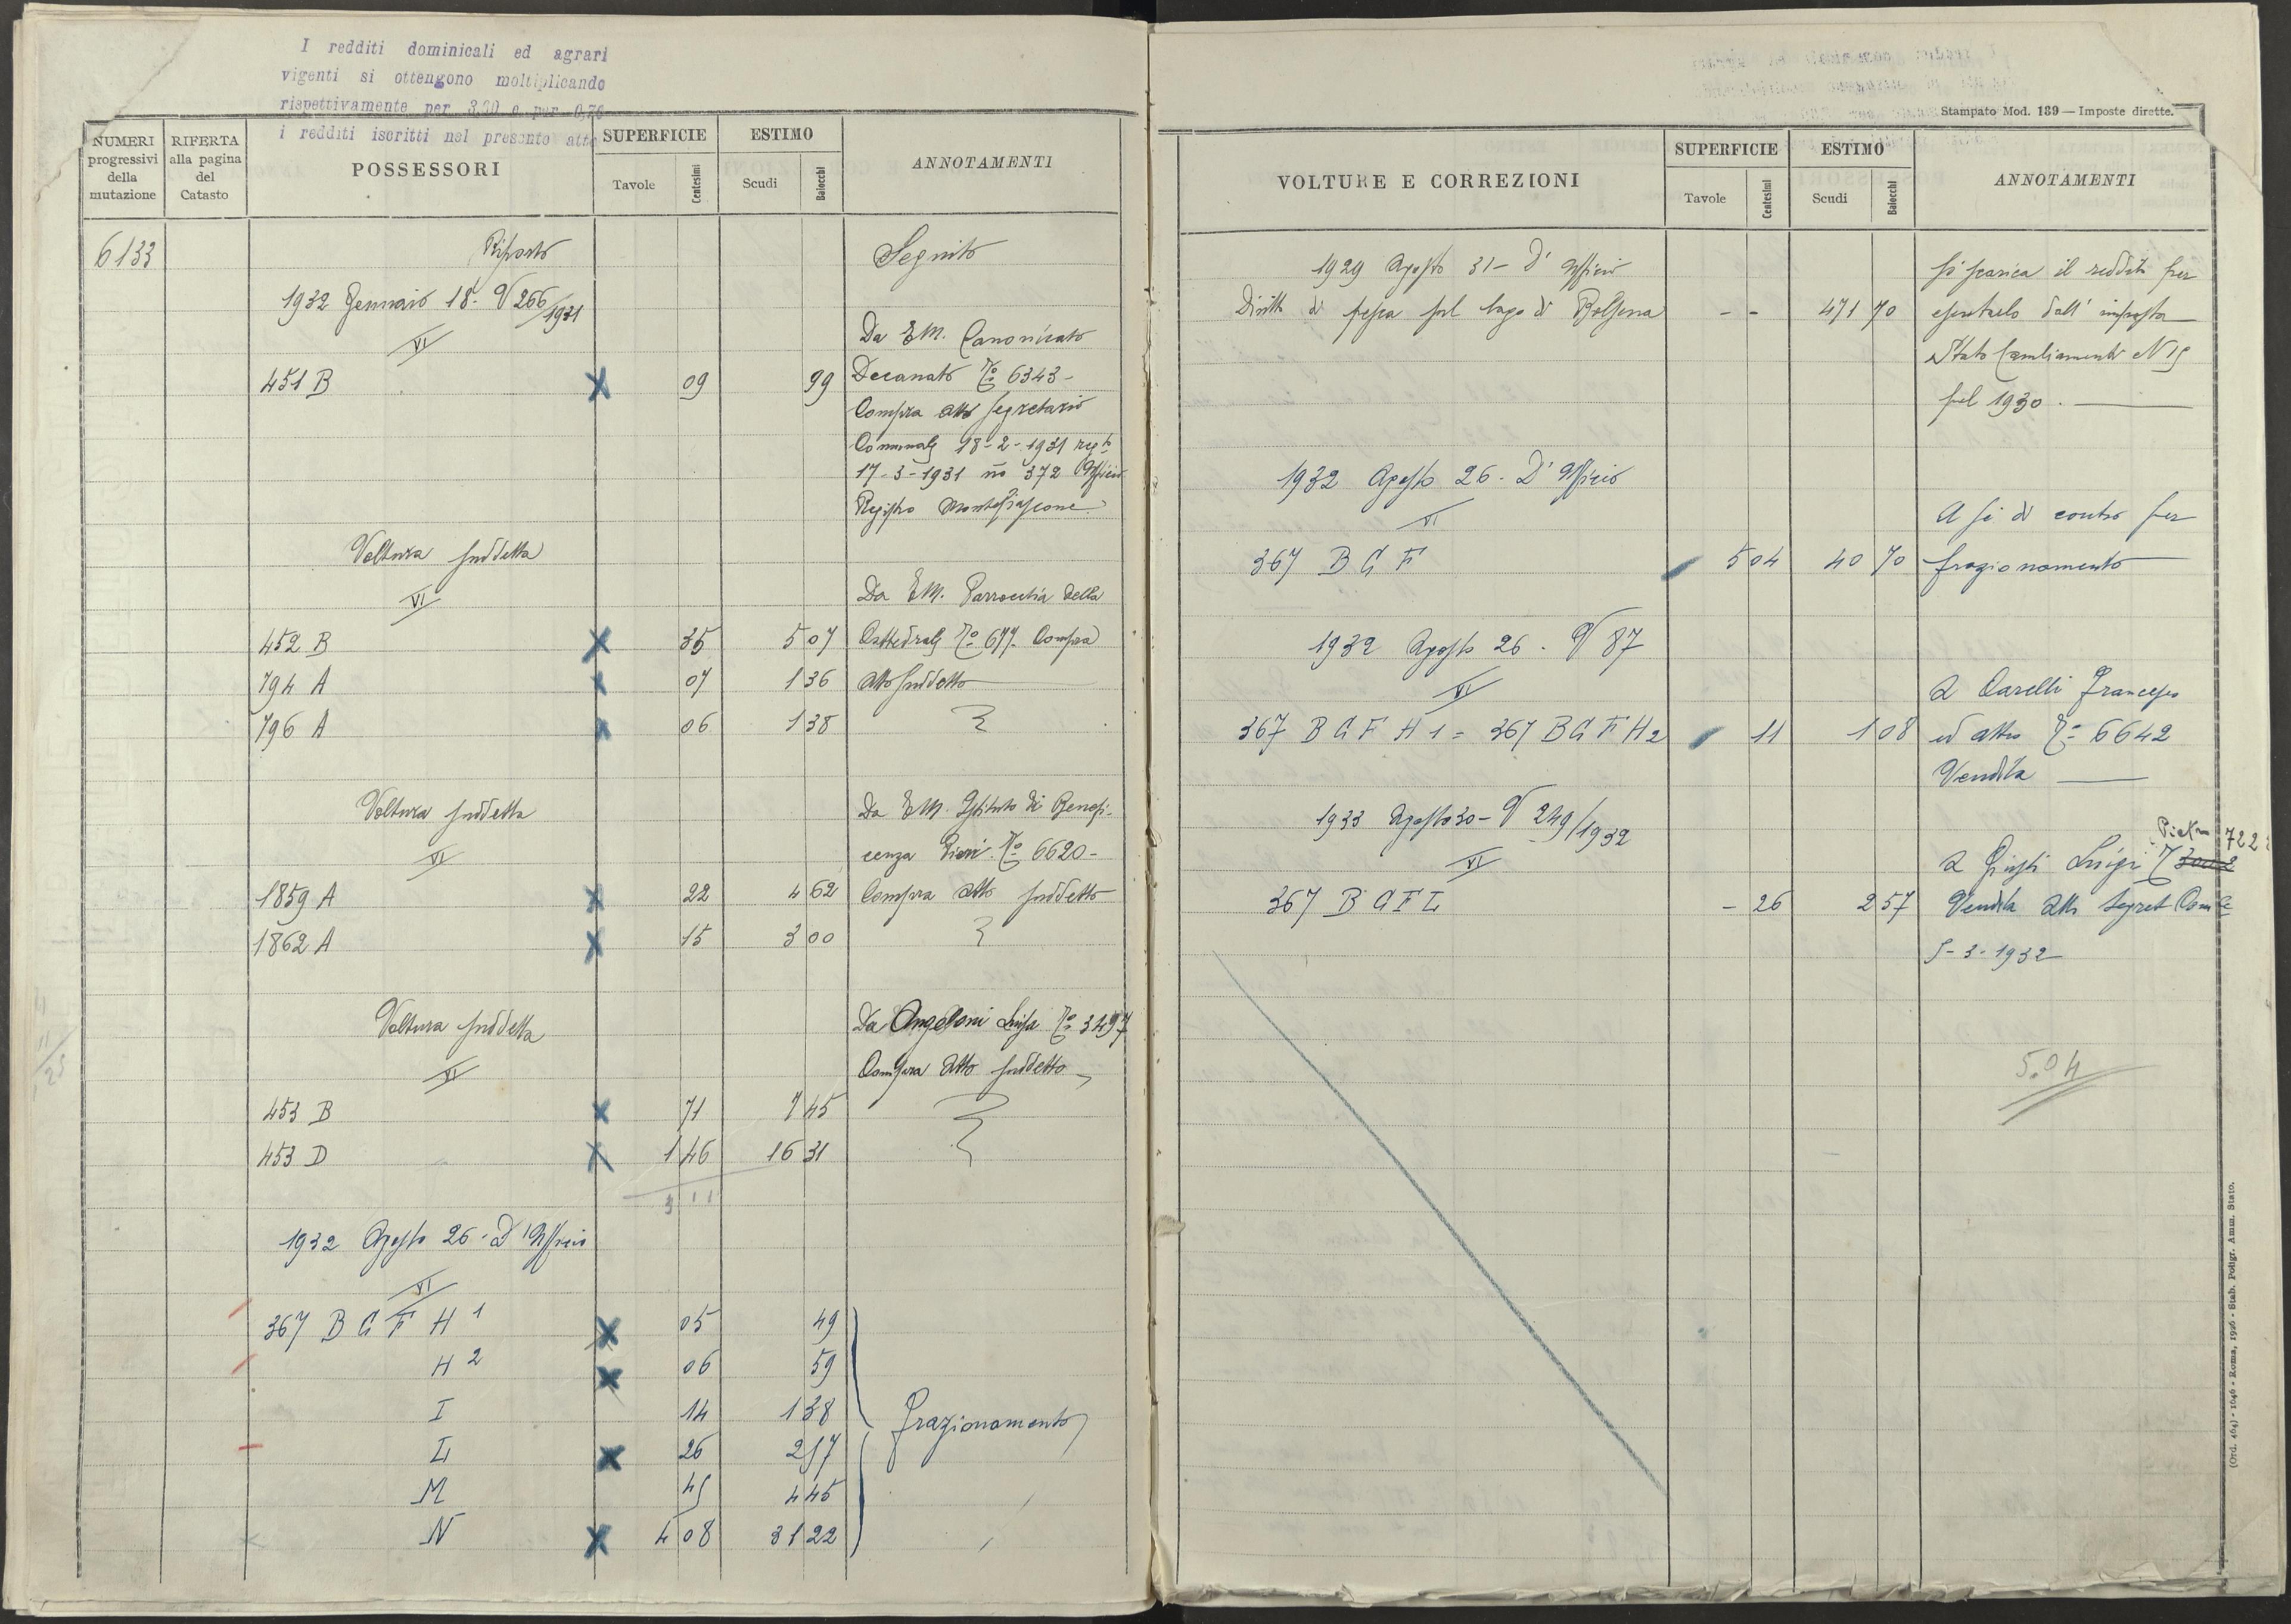 I redditi dominicali ed agrari
vigenti si ottengono moltiplicando
rispettivamente per 3,30 e per 0,76
i redditi iscritti nel presente atto
NUMERI progressivi della mutazione
RIFERTA alla pagina del Catasto
POSSESSORI
SUPERFICIE
Tavole Centesimi
ESTIMO
Scudi Baiocchi
ANNOTAMENTI
6133 Riporto Seguito
1932 Gennaio 18 - V 266/1931
VI
Da EM. Canonicato
451 B 09 99 Decanato No 6343 -
Compra atto segretario
Comunale 18-2-1931 regto
17-3-1931 no 372 Ufficio
Registro Montefiascone
Voltura suddetta
VI
Da EM. Parrocchia della
452 B 35 5 07 Cattedrale No 677. Compra
794 A 07 1 36 atto suddetto
796 A 06 1 38
Voltura suddetta
VI
Da EM. Istituto di Benefi-
cenza No 6620 -
1859 A 22 4 62 Compra atto suddetto
1862 A 15 3 00
Voltura suddetta
VI
Da Angeloni Luisa No 3497
Compra atto suddetto
453 B 71 7 45
453 D 1 46 16 31
3 11
1932 Agosto 26 - D'Ufficio
VI
367 B G F H 1 05 49
H 2 06 59
I 14 1 38
frazionamento
L 26 2 57
M 45 4 45
N 4 08 31 22
Stampato Mod. 139 — Imposte dirette.
VOLTURE E CORREZIONI
SUPERFICIE
Tavole Centesimi
ESTIMO
Scudi Baiocchi
ANNOTAMENTI
1929 Agosto 31 - D'Ufficio
Si scarica il reddito per
Diritto di pesca sul lago di Bolsena - - 471 70 esentarlo dall'imposta
Stato Cambiamenti N 15
pel 1930. —
1932 Agosto 26 - D'Ufficio
VI
A sé di contro per
367 B G F 5 04 40 70 frazionamento
1932 Agosto 26 - V 87
VI
A Carelli Francesco
367 B G F H 1 = 367 B G F H 2 11 1 08 ed altro No 6642
Vendita —
1933 Agosto 30 - V 249/1932
VI
7222
A Giusti Luigi
367 B G F L - 26 2 57 Vendita atto Segret Comle
5-3-1932
5.04
(Ord. 464) - 1646 - Roma, 1926 - Stab. Poligr. Amm. Stato.